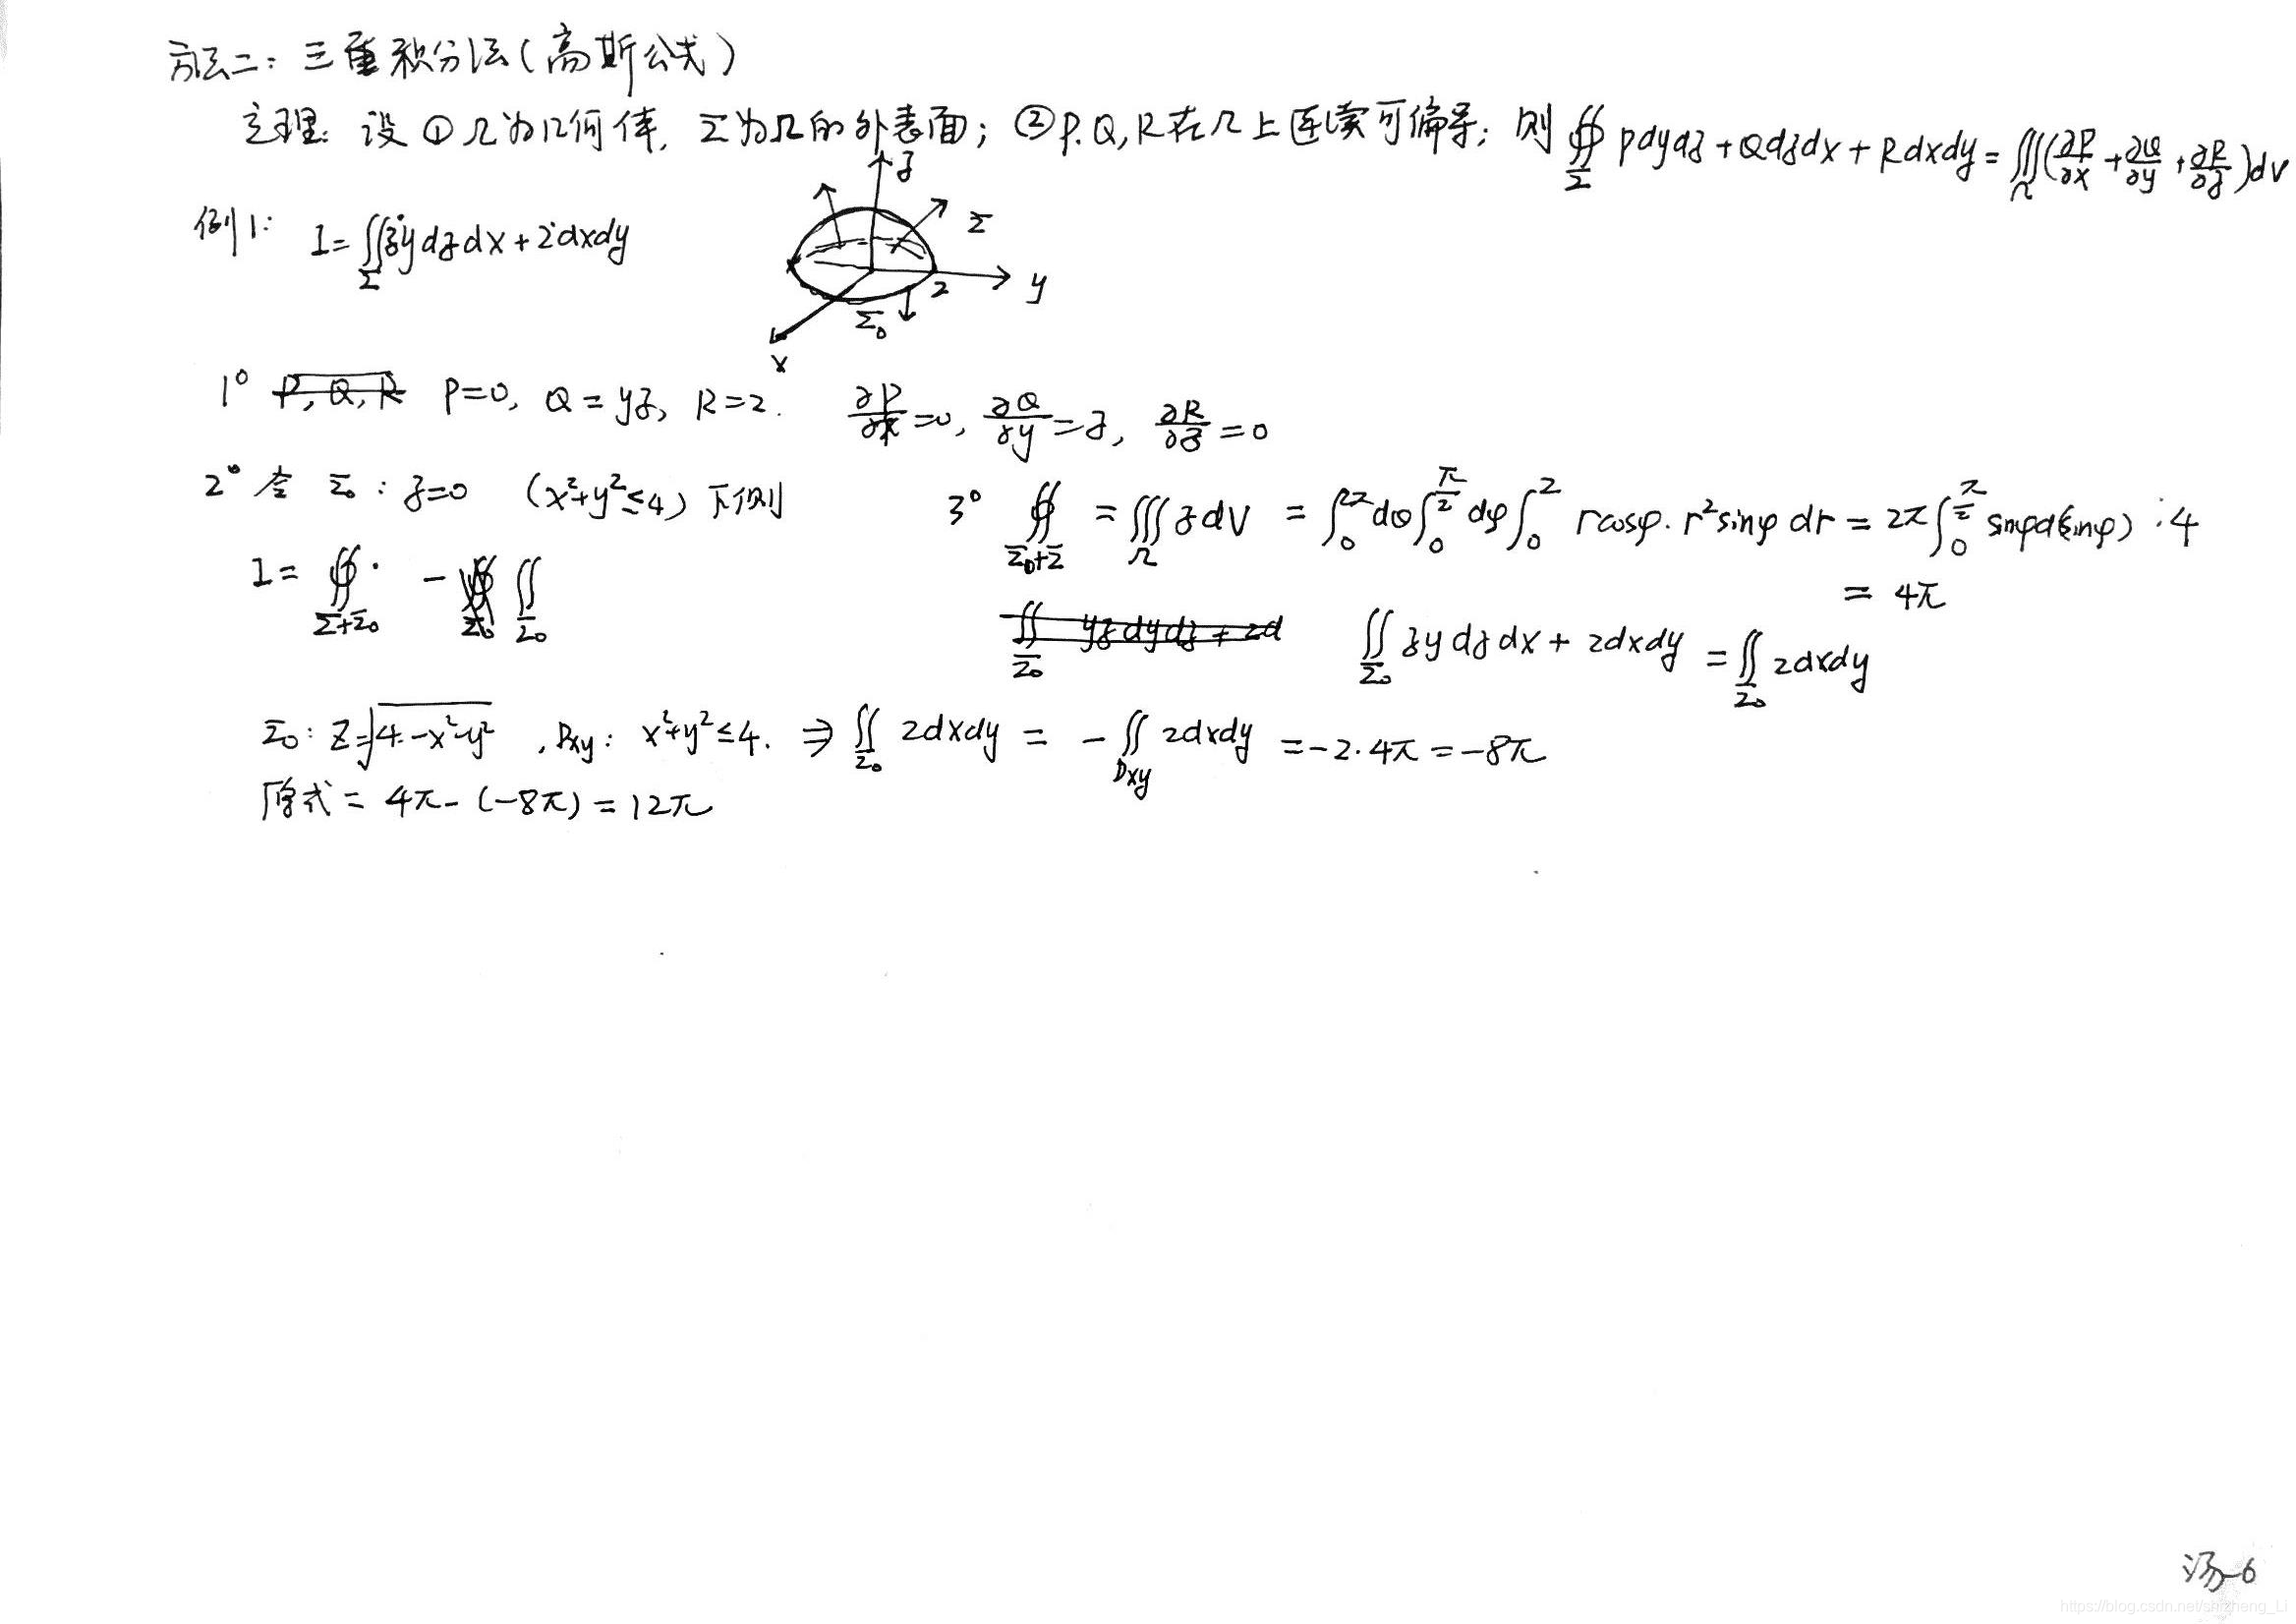 方法二：三重积分法（高斯公式）
定理：设 ① Ω为几何体，Σ为Ω的外表面；② P,Q,R在Ω上连续可偏导；则 ∯_Σ Pdydz + Qdzdx + Rdxdy = ∭_Ω (∂P/∂x + ∂Q/∂y + ∂R/∂z)dv
例1： I = ∬_Σ zydzdx + 2dxdy
z
Σ
y
2
Σ₀
x
1° P, Q, R P=0, Q=yz, R=2. ∂P/∂x=0, ∂Q/∂y=z, ∂R/∂z=0
2° 令 Σ₀：z=0 (x²+y²≤4) 下侧
I = ∯_{Σ+Σ₀} - ∬_{Σ₀}
3° ∯_{Σ₀+Σ} = ∭_Ω zdv = ∫₀^{2π}dθ∫₀^{π/2}dφ∫₀² rcosφ·r²sinφ dr = 2π∫₀^{π/2} sinφd(sinφ)·4
= 4π
∬_{Σ₀} yzdydz + 2d ∬_{Σ₀} zydzdx + 2dxdy = ∬_{Σ₀} 2dxdy
Σ₀: Z=√(4-x²-y²), Dxy: x²+y²≤4. ⇒ ∬_{Σ₀} 2dxdy = -∬_{Dxy} 2dxdy = -2·4π = -8π
原式 = 4π-(-8π) = 12π
汤-6
https://blog.csdn.net/shizheng_Li